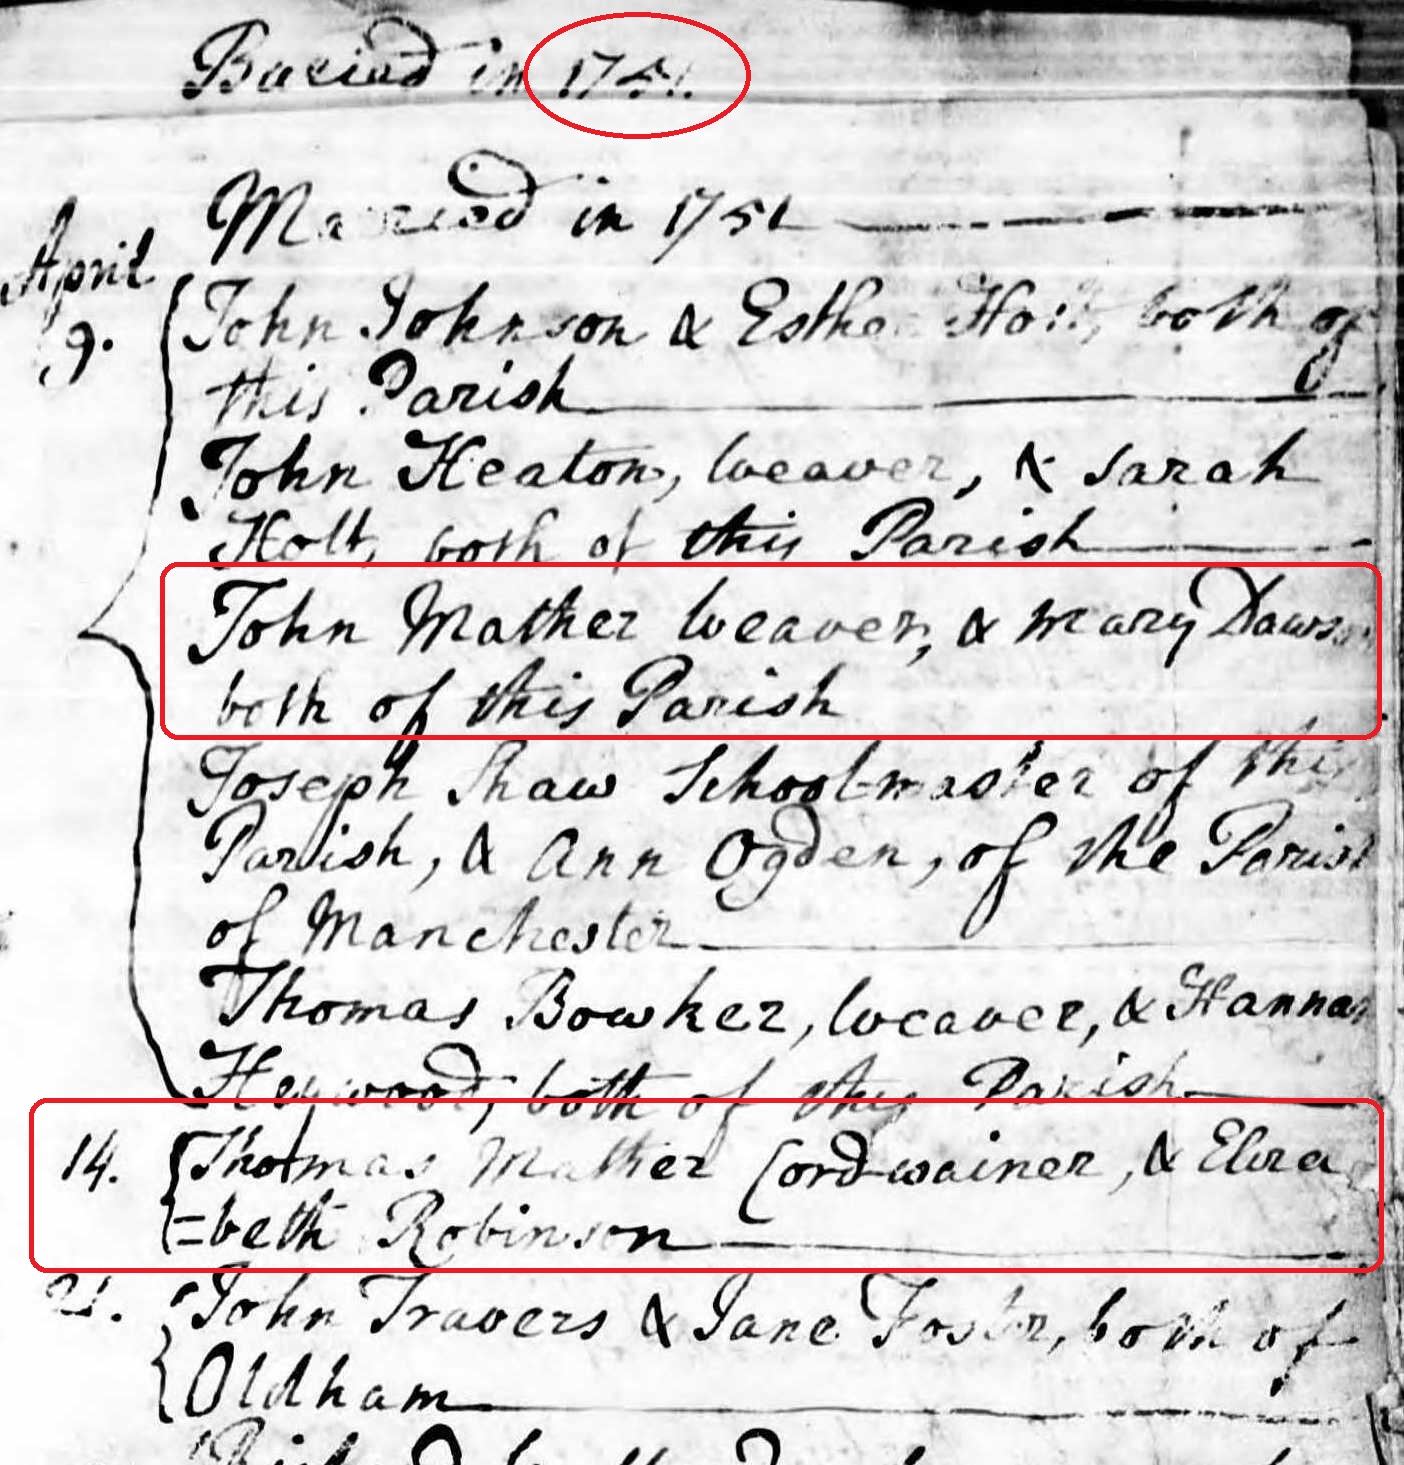 Buried in 1751.
Married in 1751
April
9. John Johnson & Esther Holt, both of
this Parish
John Heaton, weaver, & Sarah
Holt, both of this Parish
John Mather weaver, & Mary Dawson
both of this Parish
Joseph Shaw Schoolmaster of this
Parish, & Ann Ogden, of the Parish
of Manchester
Thomas Bowker, weaver, & Hannah
Heywood, both of this Parish
14. Thomas Mather Cordwainer, & Eliza
=beth Robinson
21. John Travers & Jane Foster, both of
Oldham